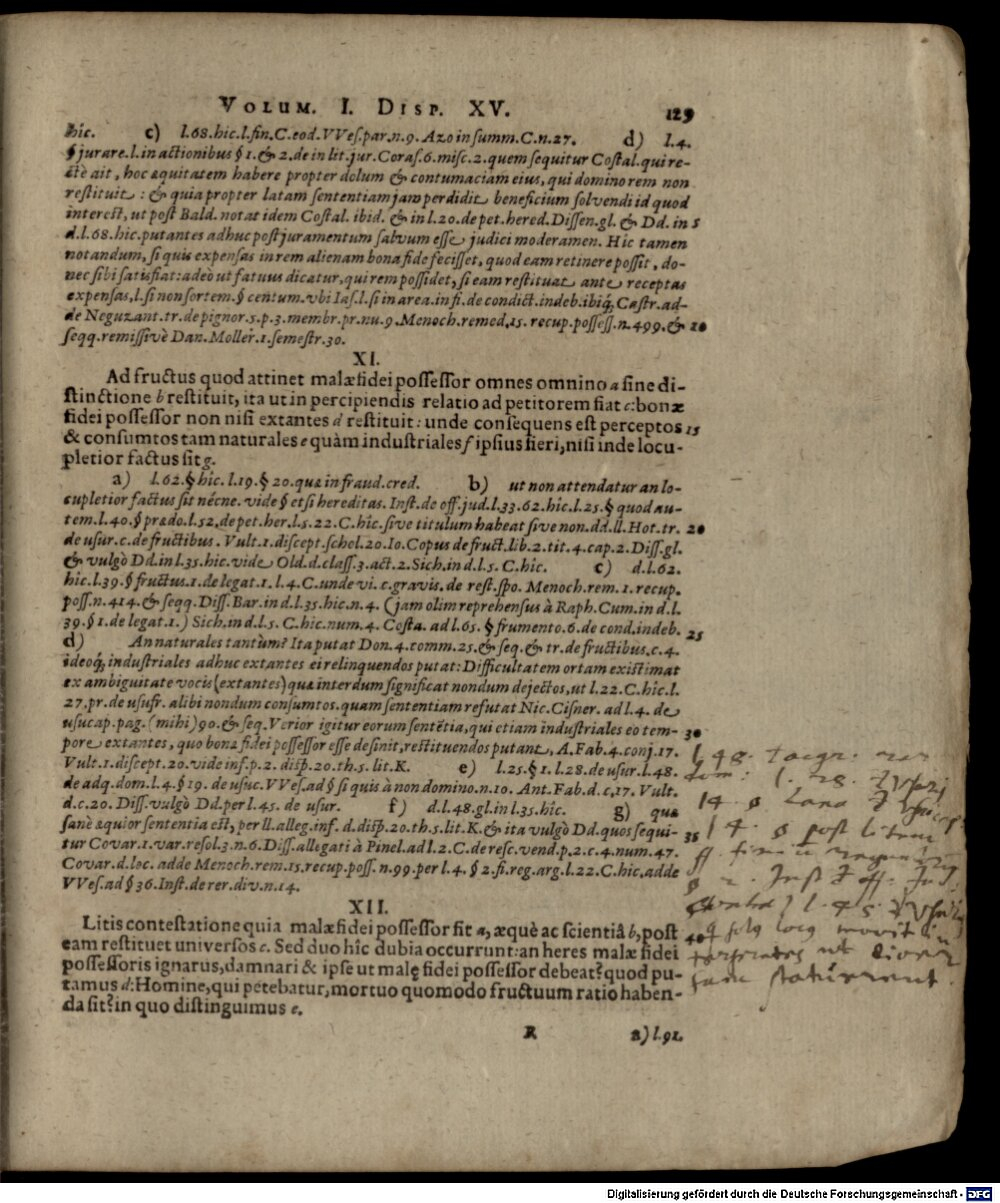 VOLUM. I. DISP. XV. 129
hîc. c) l.68.hic.l.fin.C.eod.VVes.par.n.9. Azo in summ.C.n.27. d) l.4.
§ jurare.l.in actionibus § 1. & 2.de in lit.jur.Coras.6.misc.2.quem sequitur Costal.qui re-
ctè ait, hoc æquitatem habere propter dolum & contumaciam eius, qui domino rem non
restituit: & quia propter latam sententiam jam perdidit beneficium solvendi id quod
interest, ut post Bald. notat idem Costal. ibid. & in l.20.de pet.hered.Dissen.gl. & Dd. in 5
d.l.68.hic.putantes adhuc post juramentum salvum esse judici moderamen. Hic tamen
notandum, si quis expensas in rem alienam bona fide fecisset, quod eam retinere possit, do-
nec sibi satisfiat: adeò ut fatuus dicatur, qui rem possidet, si eam restituat ante receptas
expensas,l.si non sortem.§ centum.vbi Ias.l.si in area.in fi.de condict.indeb.ibiq́, Castr.ad-
de Neguzant.tr.de pignor.5.p.3.membr.pr.nu.9.Menoch.remed.15. recup.possess.n.499.& 10
seqq.remissivè Dan.Moller.1.semestr.30.
XI.
Ad fructus quod attinet malæ fidei possessor omnes omnino a sine di-
stinctione b restituit, ita ut in percipiendis relatio ad petitorem fiat c: bonæ
fidei possessor non nisi extantes d restituit: unde consequens est perceptos 15
& consumtos tam naturales e quàm industriales f ipsius fieri, nisi inde locu-
pletior factus sit g.
a) l.62.§ hîc. l.19.§ 20.quæ in fraud.cred. b) ut non attendatur an lo-
cupletior factus sit nécne. vide § etsi hereditas. Inst.de off.jud.l.33.62.hîc.l.25.§ quod au-
tem.l.40.§ pr&do.l.52.de pet.her.l.5.22.C.hîc.sive titulum habeat sive non.dd.ll.Hot.tr. 20
de usur.c.de fructibus. Vult.1.discept.schol.20.Io.Copus de fruct.lib.2.tit.4.cap.2.Diss.gl.
& vulgò Dd.in l.35.hic.vide Old.d.class.3.act.2.Sich.in d.l.5.C.hîc. c) d.l.62.
hîc.l.39.§ fructus.1.de legat.1.l.4.C.unde vi.c.gravis.de rest.spo. Menoch.rem.1.recup.
poss.n.414.& seqq.Diss.Bar.in d.l.35.hic.n.4. (jam olim reprehensus à Raph.Cum.in d.l.
39.§ 1.de legat.1.) Sich.in d.l.5. C.hic.num.4. Costa. ad l.65. § frumento.6.de cond.indeb. 25
d) An naturales tantùm? Ita putat Don.4.comm.25.& seq.& tr.de fructibus.c.4.
ideoq́, industriales adhuc extantes ei relinquendos putat: Difficultatem ortam existimat
ex ambiguitate vocis (extantes) quæ interdum significat nondum dejectos, ut l.22.C.hîc.l.
27.pr.de usufr. alibi nondum consumtos.quam sententiam refutat Nic.Cisner.ad l.4. de
usucap.pag.(mihi)90.& seq.Verior igitur eorum sentẽtia,qui etiam industriales eo tem- 30
pore extantes, quo bonæ fidei possessor esse desinit, restituendos putant, A.Fab.4.conj.17.
Vult.1.discept.20.vide inf.p.2. disp.20.th.5.lit.K. e) l.25.§ 1.l.28.de usur.l.48.
de adq.dom.l.4.§ 19. de usuc.VVes.ad § si quis à non domino.n.10. Ant.Fab.d.c.17. Vult.
d.c.20.Diss.vulgò Dd.per l.45. de usur. f) d.l.48.gl.in l.35.hîc. g) quæ
sanè æquior sententia est, per ll.alleg.inf. d.disp.20.th.5.lit.K.& ita vulgò Dd.quos sequi- 35
tur Covar.1.var.resol.3.n.6.Diss.allegati à Pinel.ad l.2.C.de resc.vend.p.2.c.4.num.47.
Covar.d.loc.adde Menoch.rem.15.recup.poss.n.99.per l.4.§ 2.fi.reg.arg.l.22.C.hic.adde
VVes.ad § 36.Inst.de rer.div.n.14.
XII.
Litis contestatione quia malæ fidei possessor fit a, æquè ac scientiâ b, post
eam restituet universos c. Sed duo hîc dubia occurrunt: an heres malæ fidei 40
possessoris ignarus, damnari & ipse ut malę fidei possessor debeat? quod pu-
tamus d: Homine, qui petebatur, mortuo quomodo fructuum ratio haben-
da sit? in quo distinguimus e.
R a) l.91.
l. 48.
l. 28.
l 4. § Lana
l 4. § post litem
l 45